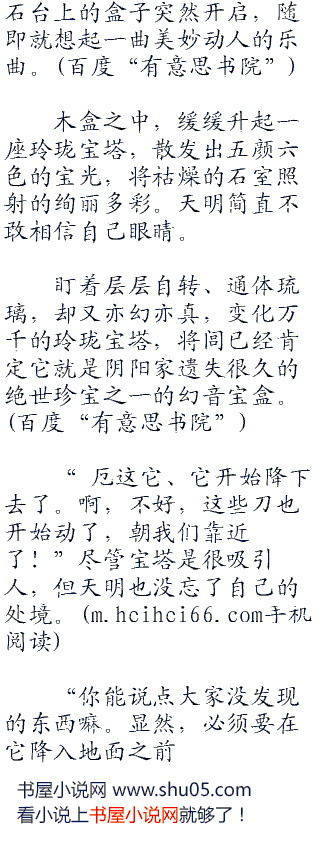 石台上的盒子突然开启，随
即就想起一曲美妙动人的乐
曲。(百度“有意思书院”)
木盒之中，缓缓升起一
座玲珑宝塔，散发出五颜六
色的宝光，将枯燥的石室照
射的绚丽多彩。天明简直不
敢相信自己眼睛。
盯着层层自转、通体琉
璃，却又亦幻亦真，变化万
千的玲珑宝塔，将闾已经肯
定它就是阴阳家遗失很久的
绝世珍宝之一的幻音宝盒。
(百度“有意思书院”)
“ 厄这它、它开始降下
去了。啊，不好，这些刀也
开始动了，朝我们靠近
了！”尽管宝塔是很吸引
人，但天明也没忘了自己的
处境。(m.hcihci66.com手机
阅读)
“你能说点大家没发现
的东西嘛。显然，必须要在
它降入地面之前
书屋小说网 www.shu05.com
看小说上书屋小说网就够了！